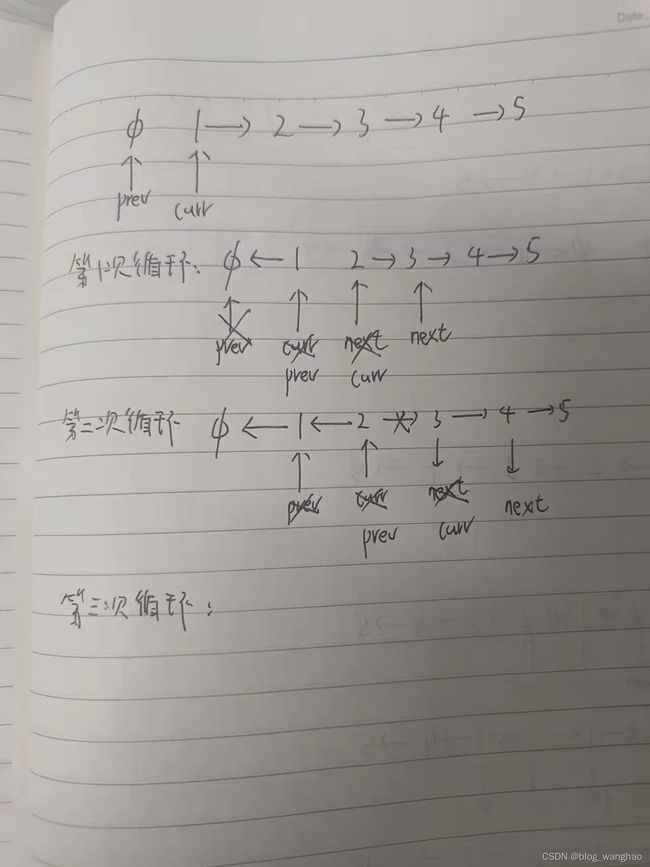 Date.
φ 1 → 2 → 3 → 4 → 5
↑ ↑
prev curr
第一次循环: φ ← 1 2 → 3 → 4 → 5
↑ ↑ ↑ ↑
prev curr next next
prev curr
第二次循环 φ ← 1 ← 2 → 3 → 4 → 5
↑ ↑ ↓ ↓
prev curr next next
prev curr
第三次循环:
CSDN @blog_wanghao